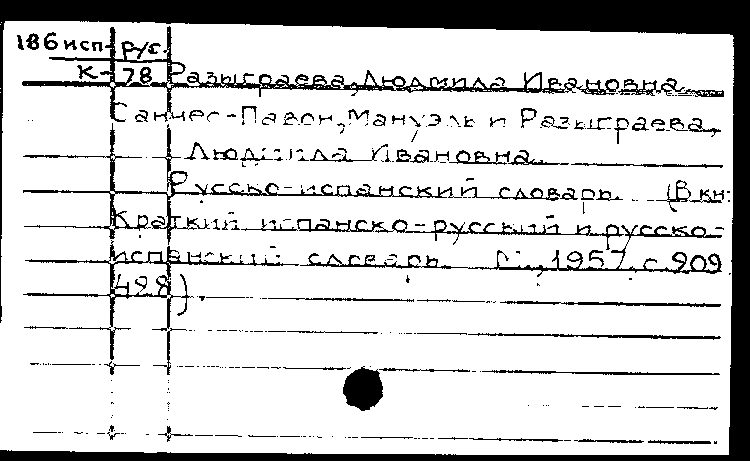 186 исп-рус.
К-78 Разыграева, Людмила Ивановна.
Санчес-Павон, Мануэль и Разыграева,
Людмила Ивановна.
Русско-испанский словарь. (В кн:
Краткий испанско-русский и русско-
испанский словарь. М., 1957, с. 209
428).